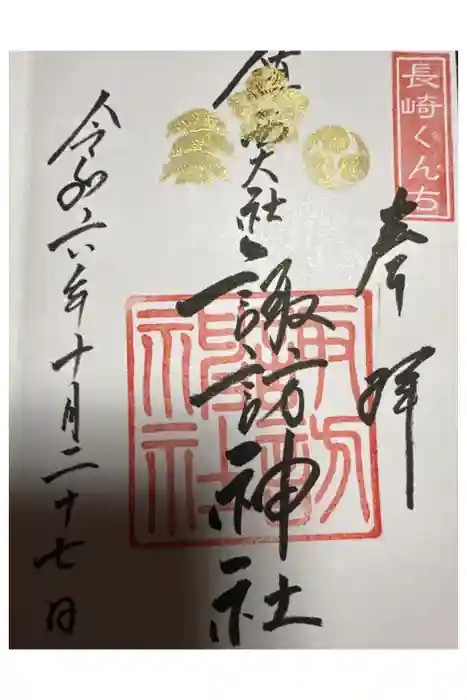 長崎くんち
奉拝
鎮西大社
諏訪神社
令和六年十月二十七日